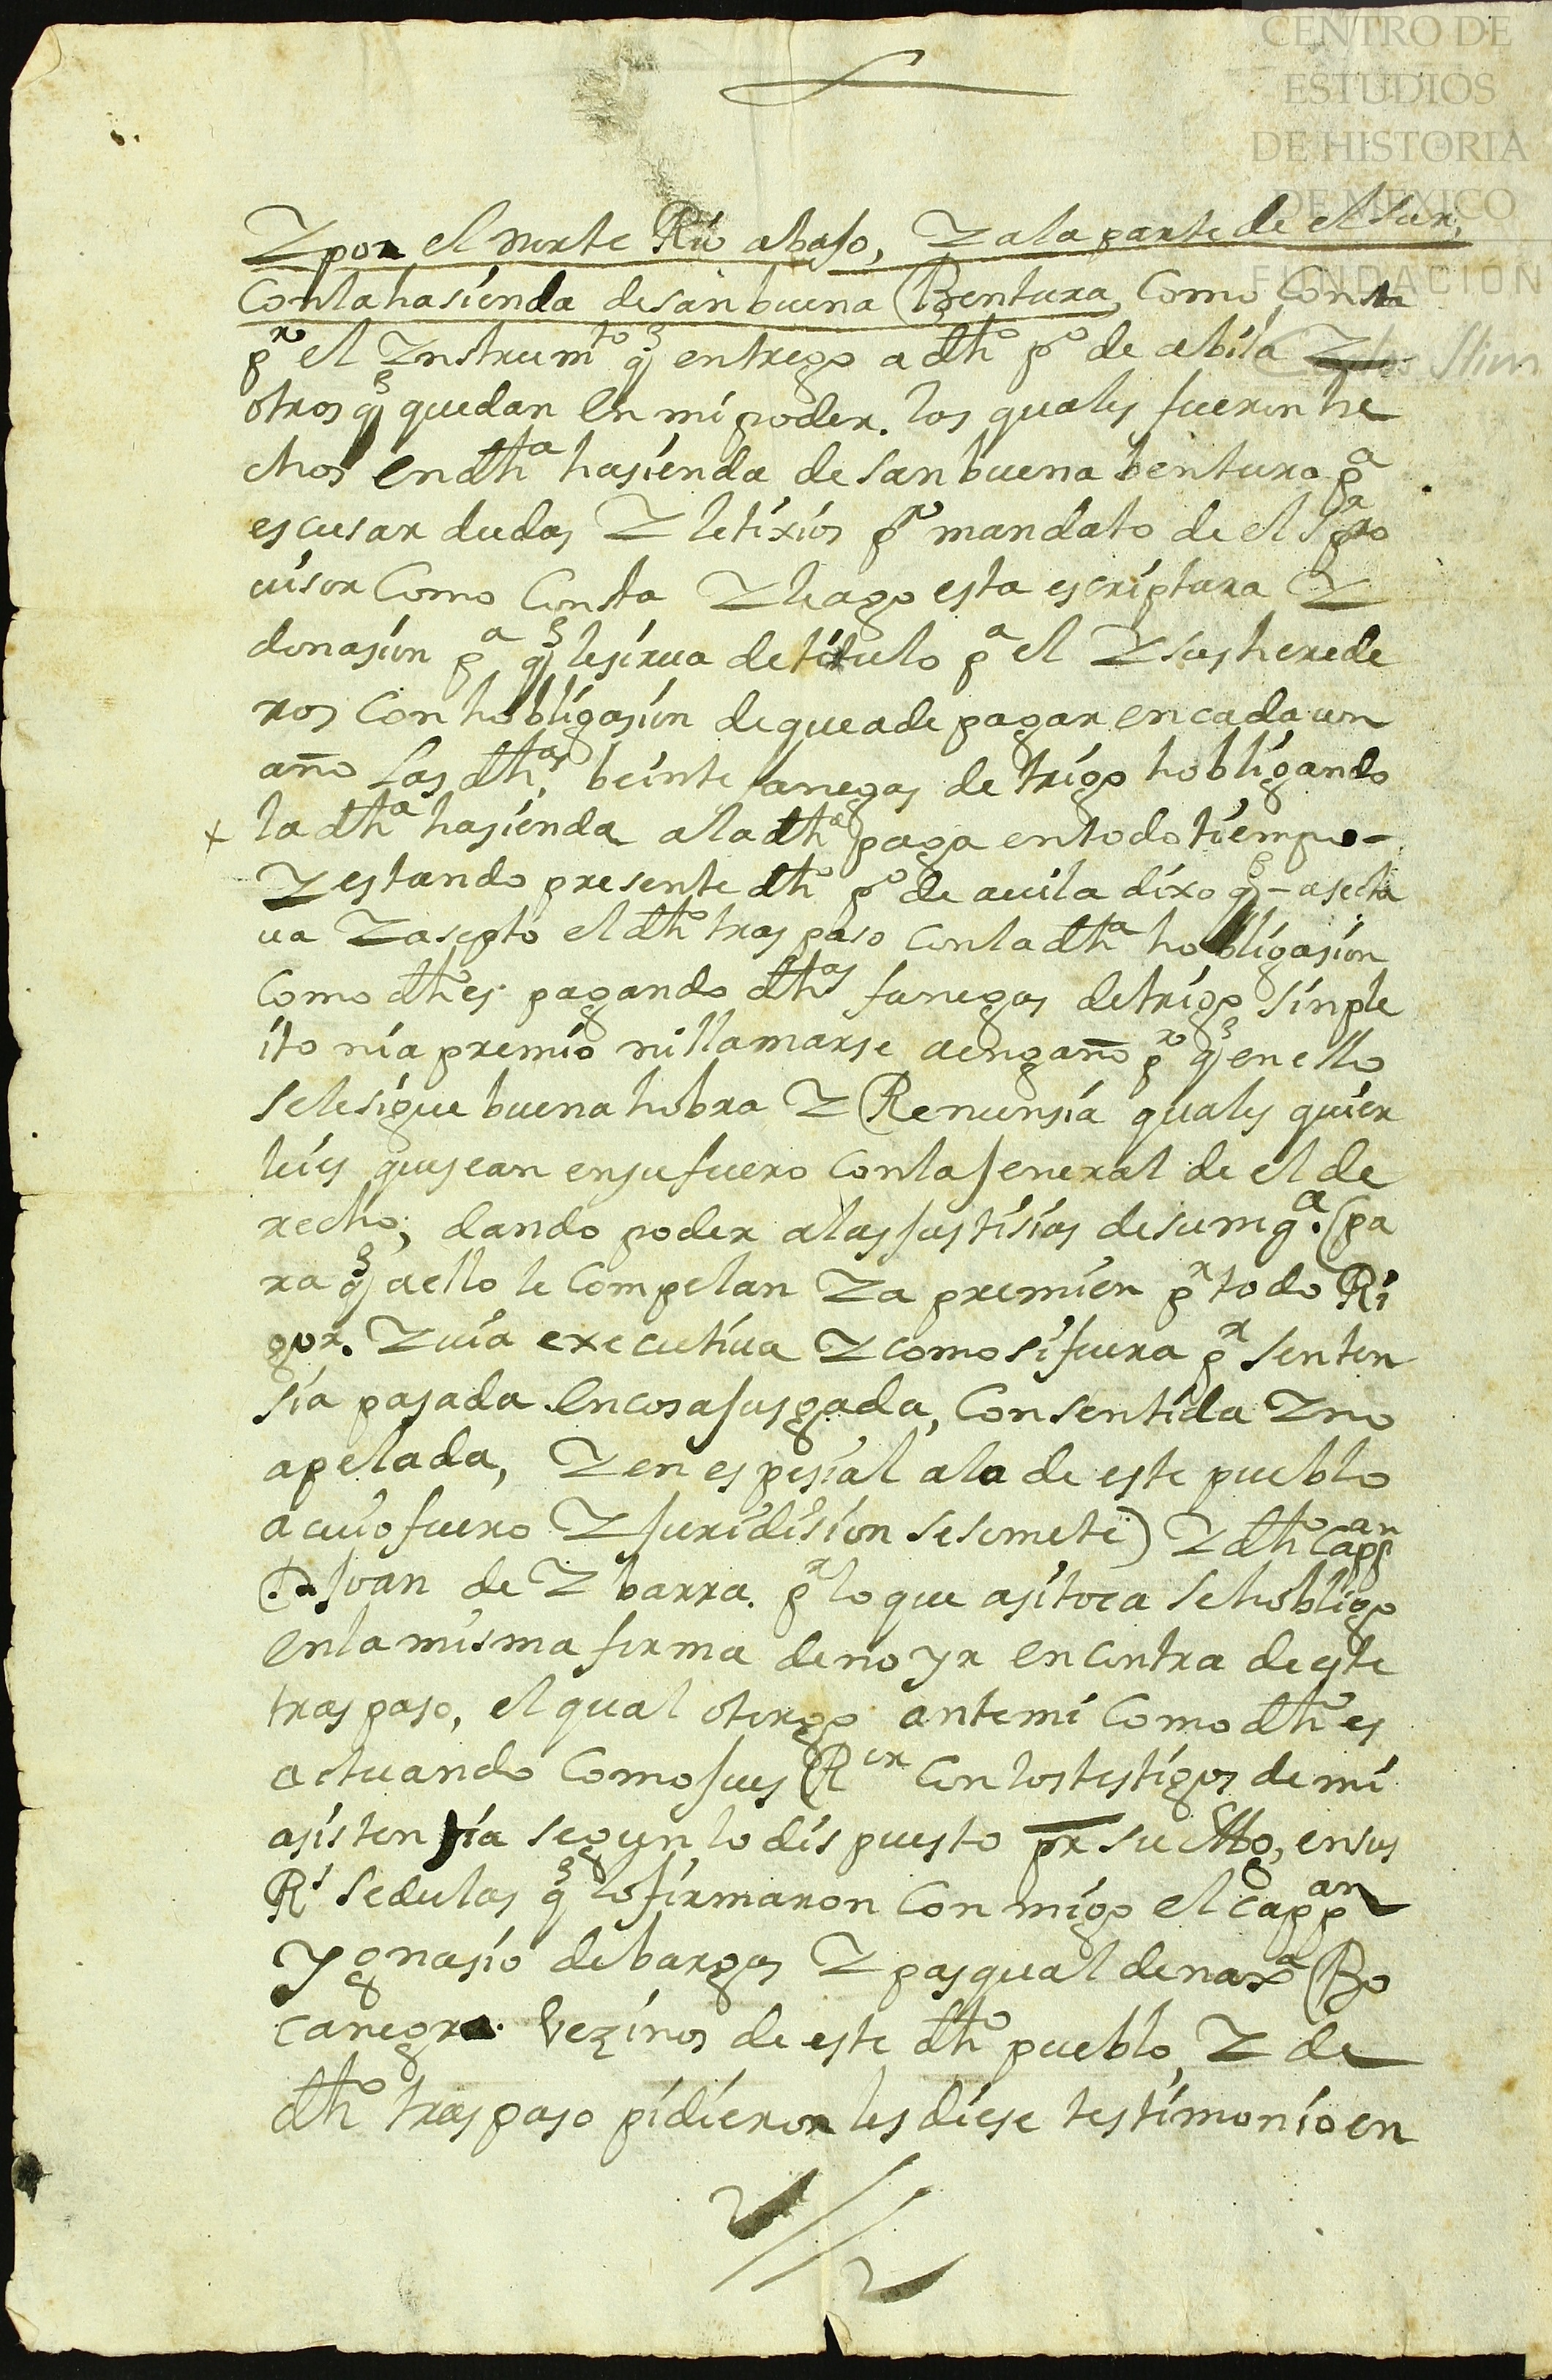 CENTRO DE
ESTUDIOS
DE HISTORIA
DE MEXICO
FUNDACIÓN
Carlos Slim
Y por el norte Rio abajo, Y ala parte de el Sur,
Con la hasienda de san buena Bentura, Como Consta
pr el Ynstrumto q entrego a dho po de abila Y
otros q quedan en mi poder. los quales fueron he
chos en dha hasienda de san buena bentura pa
escusar dudas Y letixios pr mandato de el Sr pro
uisor Como Consta Y hago esta escriptura Y
donasion pa q le sirua de titulo pa el Y sus herede
ros Con hobligasion de que a de pagar en cada un
año las dhas beinte fanegas de trigo hobligando
+ la dha hasienda a la dha paga en todo tiempo-
Y estando presente dho po de auila dixo q - asecta
ua Y asepto el dho traspaso Con la dha hobligasion
Como dho es pagando dhas fanegas de trigo sin ple
ito ni apremio ni llamarse aengaño pr q en ello
se le sigue buena hobra Y Renunsia quales quier
leies que sean en su fuero Con la jeneral de el de
recho; dando poder a las justisias de su mgd. (pa
ra q a ello le Compelan Y apremien pr todo Ri
gor. Y uia executiua Y como si fuera pr senten
sia pasada en cosa jusgada, Consentida Y no
apelada, Y en espesial a la de este pueblo
a cuio fuero Y juridision se somete) Y dho Cappan
D. juan de Ybarra. pr lo que asi toca se hobligo
en la misma forma de no yr en contra de este
traspaso, el qual otorgo ante mi Como dho es
actuando Como jues Ror Con los testigos de mi
asistensia segun lo dispuesto pr su Mg, en sus
Rs sedulas q lo firmaron Con migo el cappan
Ygnasio de bargas Y pasqual de naxa Bo
canegra. Vezinos de este dho pueblo, Y de
dho traspaso pidieron les diese testimonio en